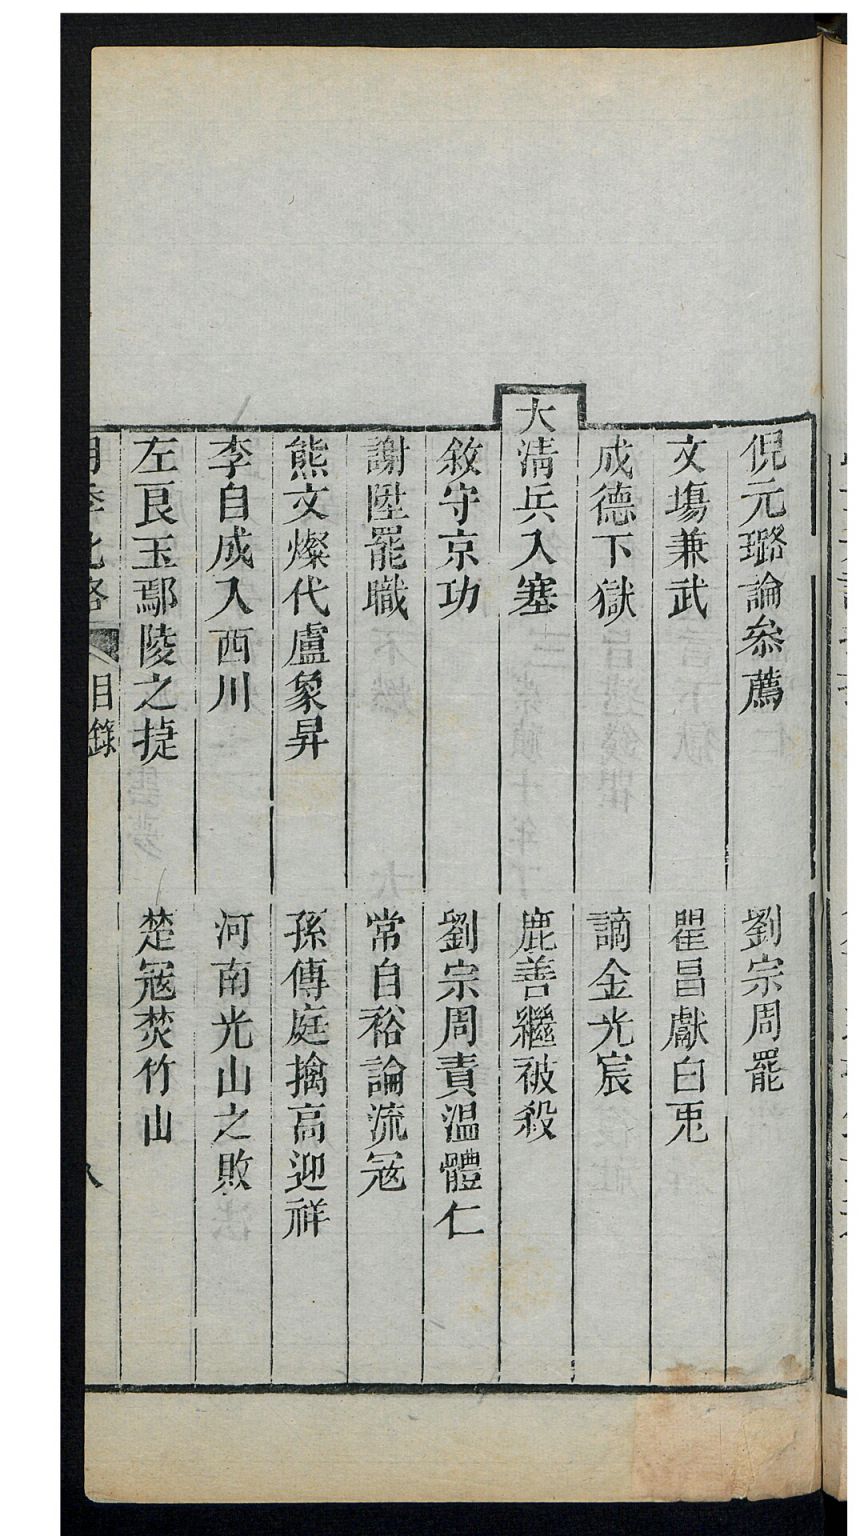 倪元璐論叅薦　劉宗周罷
文塲兼武　瞿昌獻白兎
成德下獄　謫金光宸
大清兵入塞　鹿善繼被殺
敘守京功　劉宗周責溫體仁
謝陞罷職　常自裕論流冦
熊文燦代盧象昇　孫傳庭擒高迎祥
李自成入西川　河南光山之敗
左良玉鄢陵之捷　楚冦焚竹山
明季北略　目錄　八